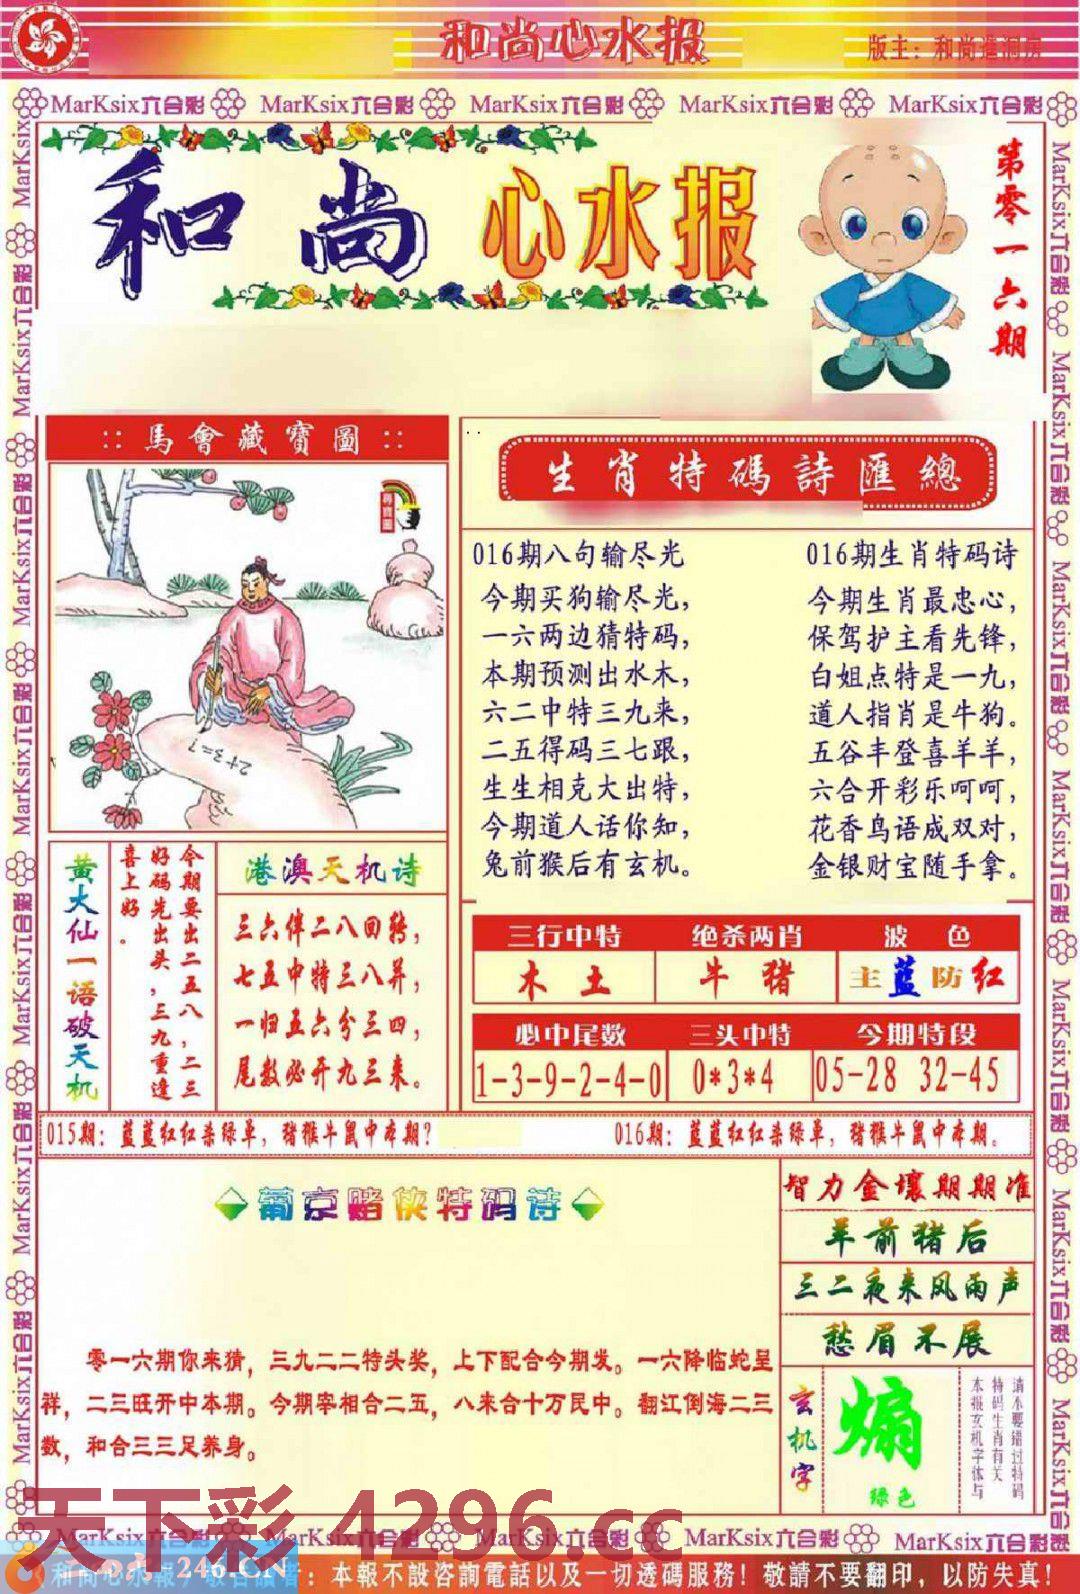 和尚心水报
版主：和尚進洞房
MarKsix六合彩 MarKsix六合彩 MarKsix六合彩 MarKsix六合彩 MarKsix六合彩
和尚心水报
第零一六期
:: 馬會藏寶圖 ::
尋寶圖
2+3=?
生肖特碼詩匯總
016期八句输尽光
今期买狗输尽光，
一六两边猜特码，
本期预测出水木，
六二中特三九来，
二五得码三七跟，
生生相克大出特，
今期道人话你知，
兔前猴后有玄机。
016期生肖特码诗
今期生肖最忠心，
保驾护主看先锋，
白姐点特是一九，
道人指肖是牛狗。
五谷丰登喜羊羊，
六合开彩乐呵呵，
花香鸟语成双对，
金银财宝随手拿。
黄大仙一语破天机
今期要出二五八，二三
好码先出头，三九重逢
喜上好。
港澳天机诗
三六伴二八回转，
七五中特三八并，
一归五六分三四，
尾数必开九三来。
三行中特 绝杀两肖 波色
木土 牛猪 主蓝防红
必中尾数 三头中特 今期特段
1-3-9-2-4-0 0*3*4 05-28 32-45
015期：蓝蓝红红杀绿单，猪猴牛鼠中本期？
016期：蓝蓝红红杀绿单，猪猴牛鼠中本期。
葡京赌侠特码诗
零一六期你来猜，三九二二特头奖，上下配合今期发。一六降临蛇呈
祥，二三旺开中本期。今期宰相合二五，八来合十万民中。翻江倒海二三
数，和合三三足养身。
智力金壤期期准
羊前猪后
三二夜来风雨声
愁眉不展
玄机字
煽
绿色
请不要错过特码
特码生肖有关
本报玄机字体与
天下彩 4296.cc
MarKsix六合彩 MarKsix六合彩 MarKsix六合彩 MarKsix六合彩 MarKsix六合彩
二四六 246.CN
和尚心水報，敬告讀者：本報不設咨詢電話以及一切透碼服務！敬請不要翻印，以防失真！